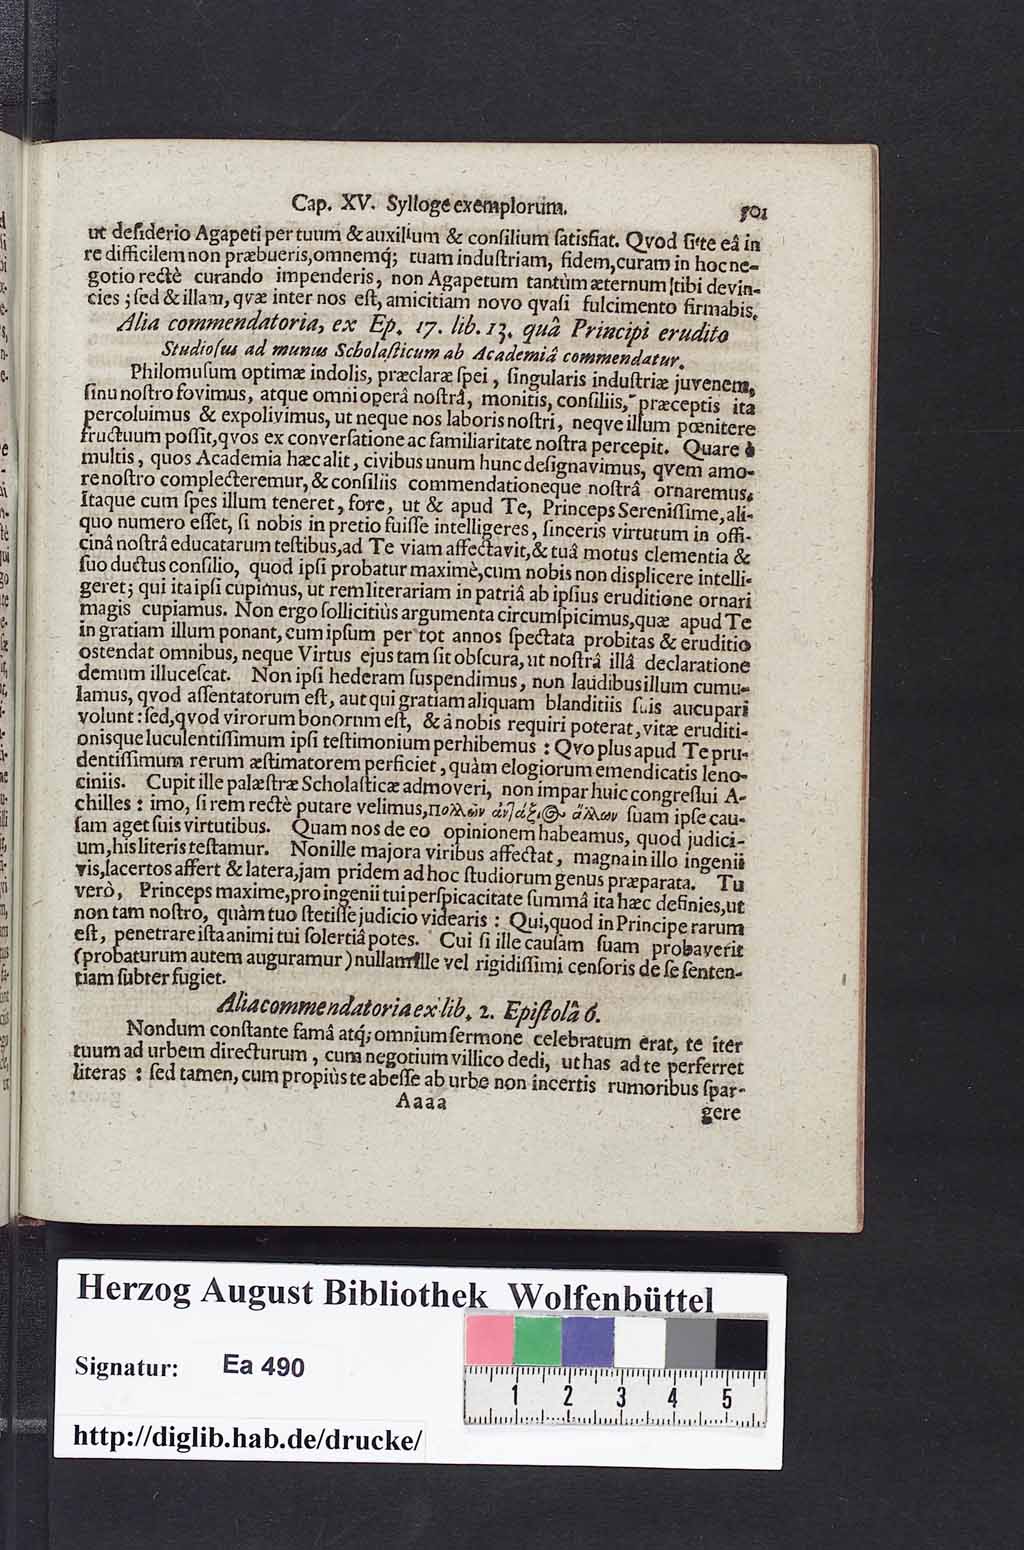 Cap. XV. Sylloge exemplorum. 501
ut deſiderio Agapeti per tuum & auxilium & conſilium ſatisfiat. Qvod ſi te eâ in
re difficilem non præbueris, omnemq; tuam induſtriam, fidem, curam in hoc ne-
gotio rectè curando impenderis, non Agapetum tantùm æternum tibi devin-
cies; ſed & illam, qvæ inter nos eſt, amicitiam novo qvaſi fulcimento firmabis.
Alia commendatoria, ex Ep. 17. lib. 13. quâ Principi erudito
Studioſus ad munus Scholaſticum ab Academiâ commendatur.
Philomuſum optimæ indolis, præclaræ ſpei, ſingularis induſtriæ juvenem,
ſinu noſtro fovimus, atque omni operâ noſtrâ, monitis, conſiliis, præceptis ita
percoluimus & expolivimus, ut neque nos laboris noſtri, neqve illum pœnitere
fructuum poſſit, qvos ex converſatione ac familiaritate noſtra percepit. Quare è
multis, quos Academia hæc alit, civibus unum hunc deſignavimus, qvem amo-
re noſtro complecteremur, & conſiliis commendationeque noſtrâ ornaremus.
Itaque cum ſpes illum teneret, fore, ut & apud Te, Princeps Sereniſſime, ali-
quo numero eſſet, ſi nobis in pretio fuiſſe intelligeres, ſinceris virtutum in offi-
cinâ noſtrâ educatarum teſtibus, ad Te viam affectavit, & tuâ motus clementia &
ſuo ductus conſilio, quod ipſi probatur maximè, cum nobis non displicere intelli-
geret; qui ita ipſi cupimus, ut rem literariam in patriâ ab ipſius eruditione ornari
magis cupiamus. Non ergo ſollicitiùs argumenta circumſpicimus, quæ apud Te
in gratiam illum ponant, cum ipſum per tot annos ſpectata probitas & eruditio
ostendat omnibus, neque Virtus ejus tam ſit obſcura, ut noſtrâ illâ declaratione
demum illuceſcat. Non ipſi hederam ſuspendimus, non laudibus illum cumu-
lamus, qvod aſſentatorum eſt, aut qui gratiam aliquam blanditiis ſuis aucupari
volunt: ſed, qvod virorum bonorum eſt, & à nobis requiri poterat, vitæ eruditi-
onisque luculentiſſimum ipſi teſtimonium perhibemus: Qvo plus apud Te pru-
dentiſſimum rerum æſtimatorem perficiet, quàm elogiorum emendicatis leno-
ciniis. Cupit ille palæſtræ Scholaſticæ admoveri, non impar huic congreſſui A-
chilles: imo, ſi rem rectè putare velimus, πολλῶν ἀντάξιος ἄλλων ſuam ipſe cau-
ſam aget ſuis virtutibus. Quam nos de eo opinionem habeamus, quod judici-
um, his literis teſtamur. Non ille majora viribus affectat, magna in illo ingenii
vis, lacertos affert & latera, jam pridem ad hoc ſtudiorum genus præparata. Tu
verò, Princeps maxime, pro ingenii tui perſpicacitate ſummâ ita hæc definies, ut
non tam noſtro, quàm tuo ſtetiſſe judicio videaris: Qui, quod in Principe rarum
eſt, penetrare iſta animi tui ſolertiâ potes. Cui ſi ille cauſam ſuam probaverit
(probaturum autem auguramur) nullam ille vel rigidiſſimi cenſoris de ſe ſenten-
tiam ſubterfugiet.
Alia commendatoria ex lib. 2. Epiſtolâ 6.
Nondum conſtante famâ atq; omnium ſermone celebratum erat, te iter
tuum ad urbem directurum, cum negotium villico dedi, ut has ad te perferret
literas: ſed tamen, cum propiùs te abeſſe ab urbe non incertis rumoribus ſpar-
Aaaa gere
Herzog August Bibliothek Wolfenbüttel
Signatur: Ea 490
1 2 3 4 5
http://diglib.hab.de/drucke/